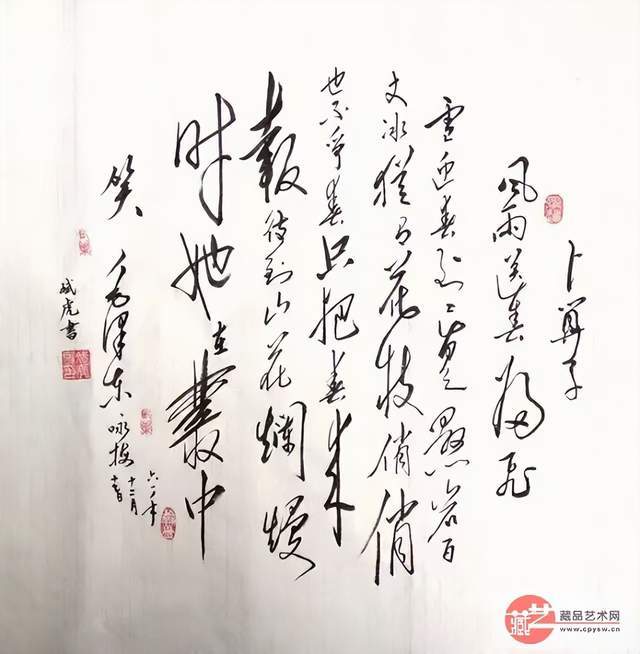 卜算子
風雨送春归飞
雪迎春到已是懸岩百
丈冰猶有花枝俏俏
也不争春只把春来
報待到山花爛熳
时她在叢中
笑
毛泽东咏梅
六一年
十二月
斌虎書
藏艺
藏品艺术网
www.cpysw.cn